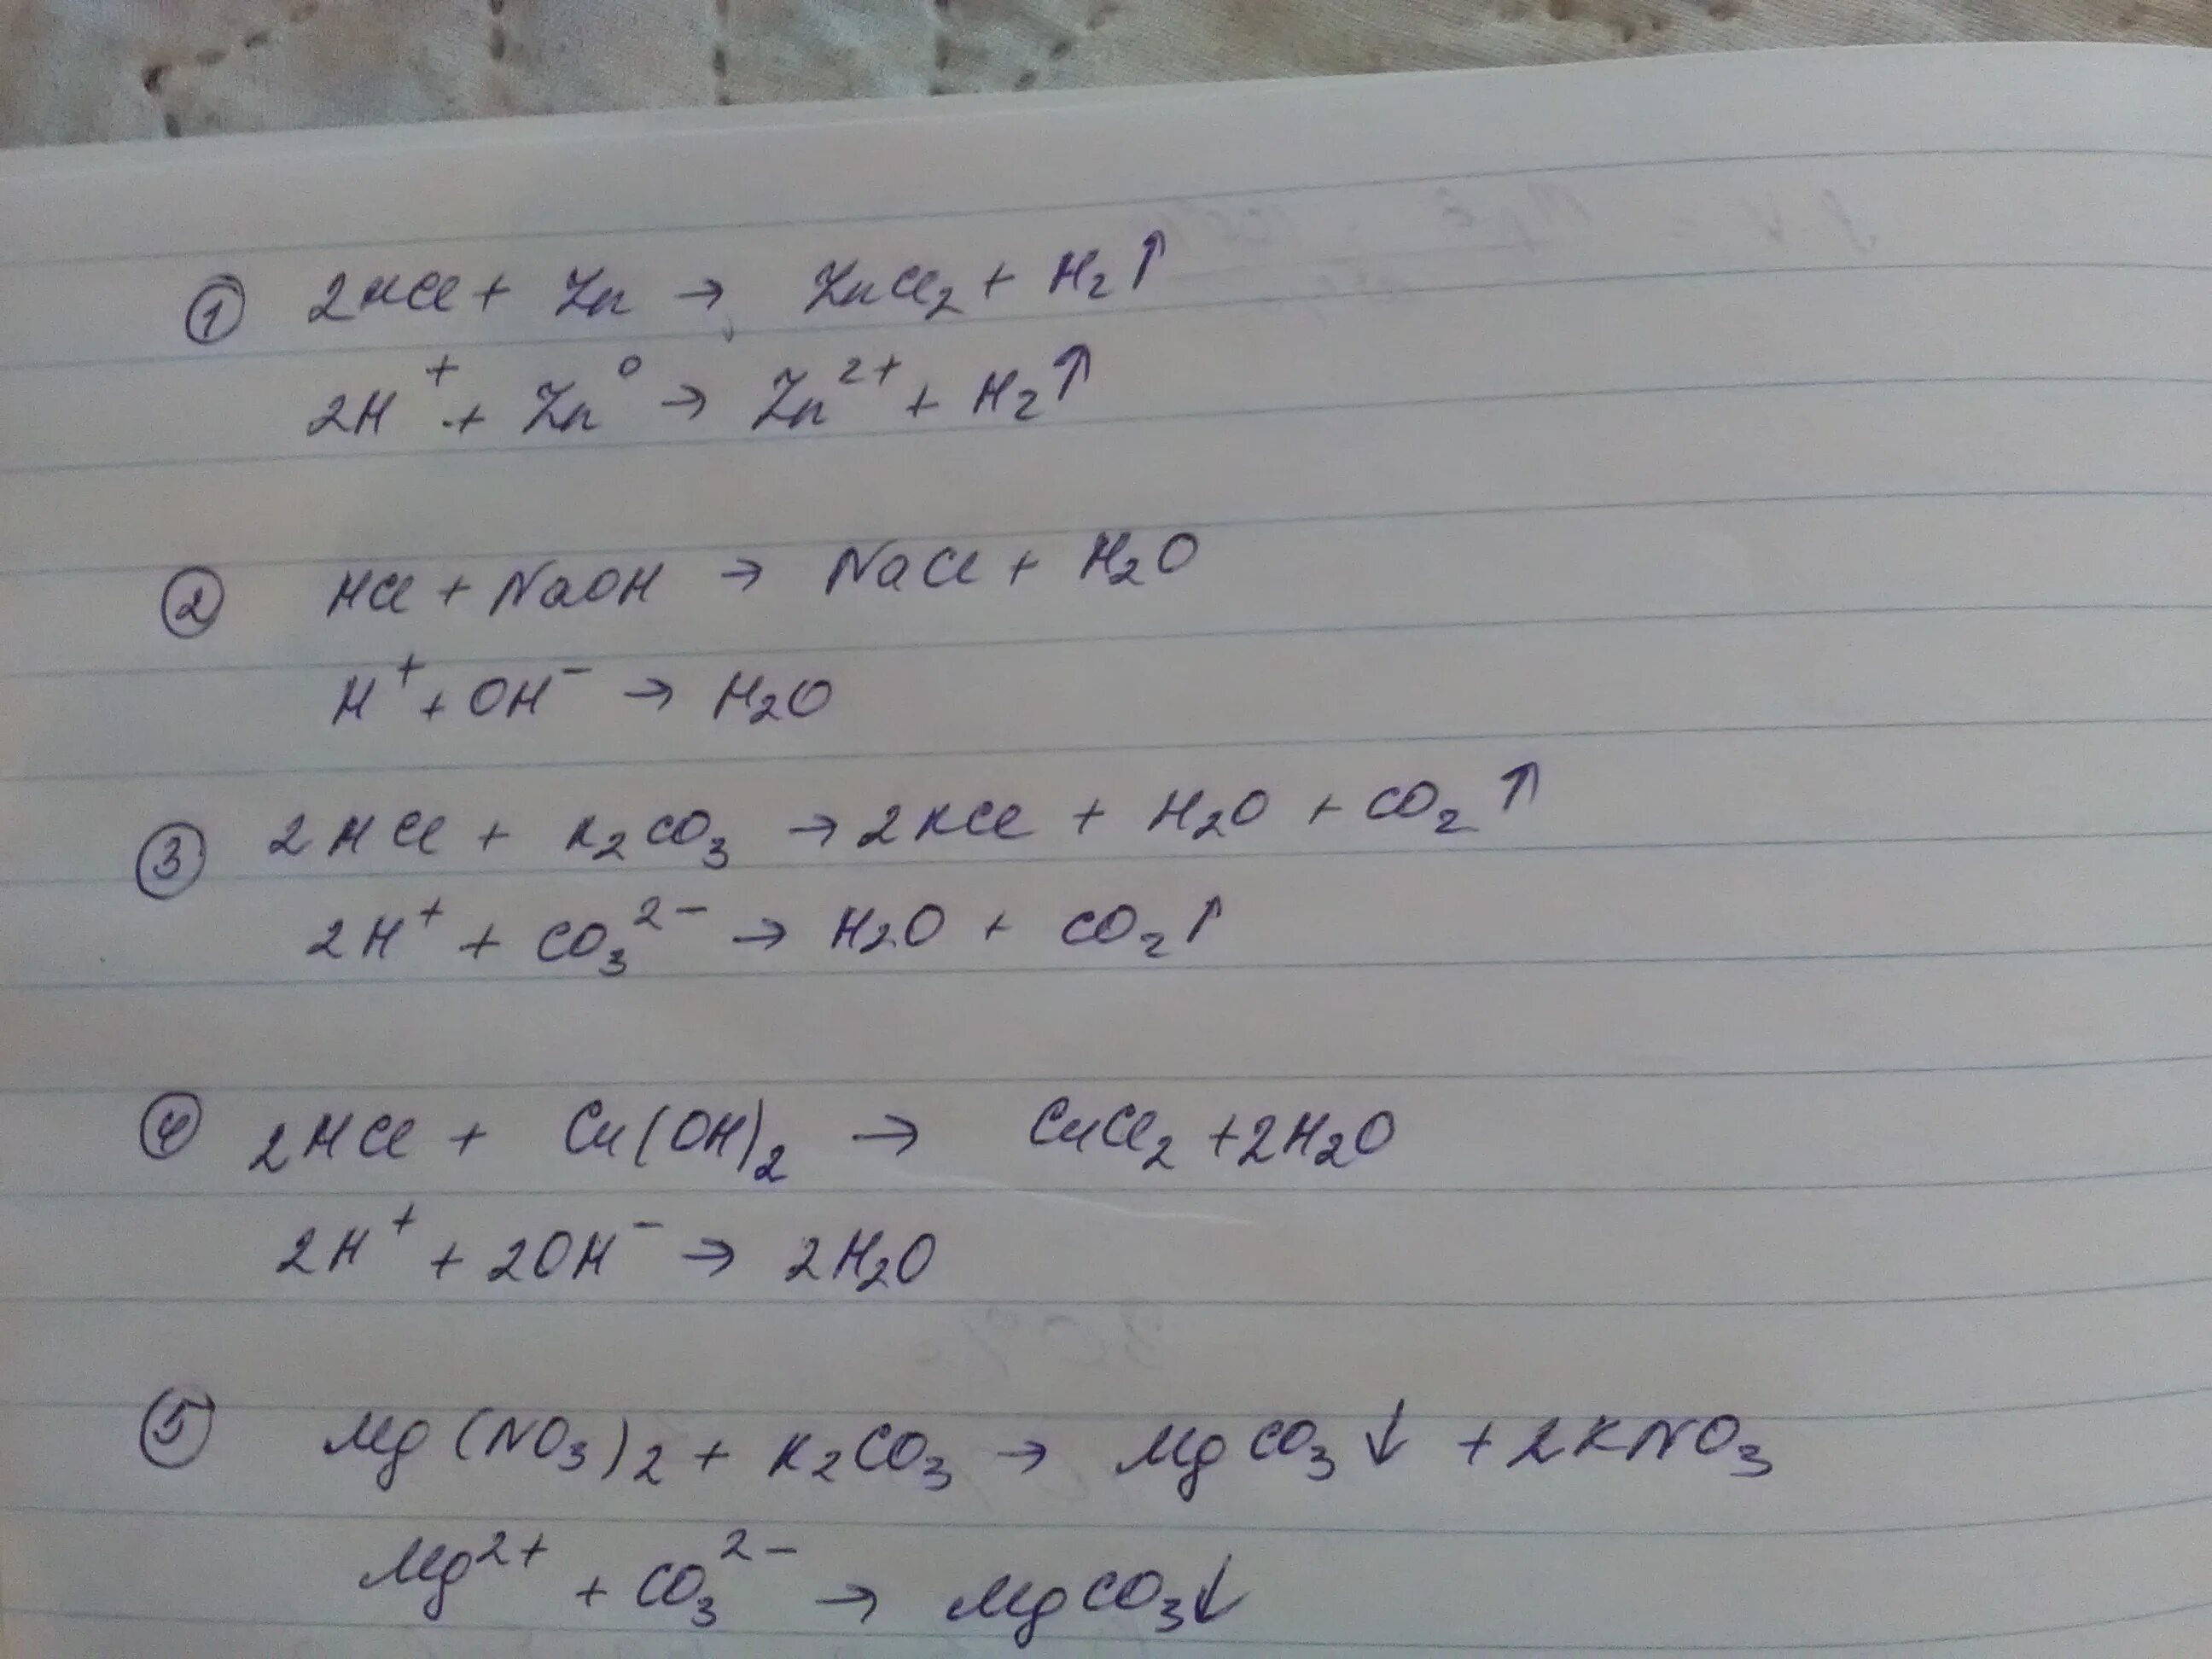 ① 2HCl + Zn → ZnCl₂ + H₂↑
2H⁺ + Zn⁰ → Zn²⁺ + H₂↑
② HCl + NaOH → NaCl + H₂O
H⁺ + OH⁻ → H₂O
③ 2HCl + K₂CO₃ → 2KCl + H₂O + CO₂↑
2H⁺ + CO₃²⁻ → H₂O + CO₂↑
④ 2HCl + Cu(OH)₂ → CuCl₂ + 2H₂O
2H⁺ + 2OH⁻ → 2H₂O
⑤ Mg(NO₃)₂ + K₂CO₃ → MgCO₃↓ + 2KNO₃
Mg²⁺ + CO₃²⁻ → MgCO₃↓